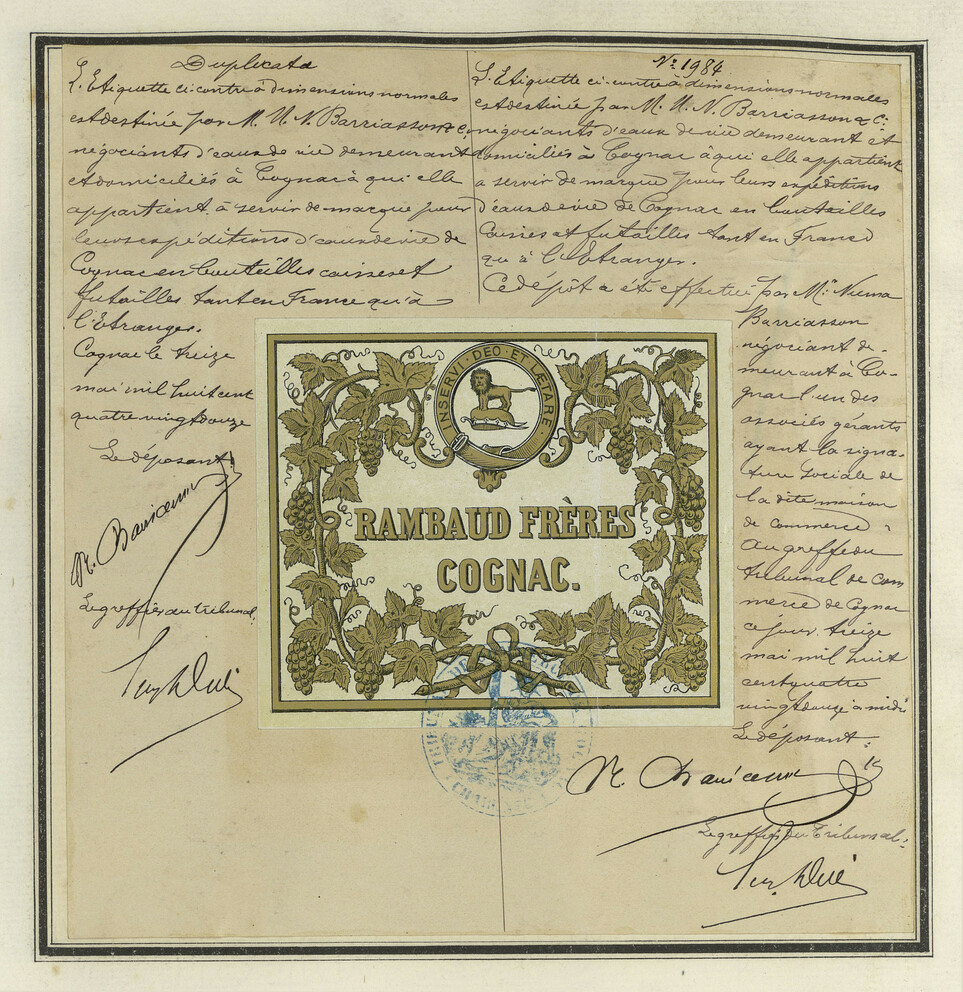 Duplicata
L'Etiquette ci-contre à dimensions normales
est destinée par M. M. N. Barriasson & C.
négociants d'eaux de vie demeurant
et domiciliés à Cognac à qui elle
appartient à servir de marque pour
leurs expéditions d'eaux de vie de
Cognac en bouteilles caisses et
futailles tant en France qu'à
l'Etranger.
Cognac le treize
mai mil huit cent
quatre vingt douze
Le déposant
N. Barriasson
Le greffier du tribunal
No 1984
L'Etiquette ci-contre à dimensions normales
est destinée par M. M. N. Barriasson & Cie
négociants d'eaux de vie demeurant et
domiciliés à Cognac à qui elle appartient
a servir de marque pour leurs expéditions
d'eaux de vie de Cognac en bouteilles
Caisses et futailles tant en France
qu'à l'Etranger.
Ce dépôt a été effectué par Mr Numa
Barriasson
négociant de-
meurant à Co-
gnac l'un des
associés gérants
ayant la signa-
ture sociale de
la dite maison
de commerce
au greffe du
tribunal de com
merce de Cognac
ce jour treize
mai mil huit
cent quatre
vingt douze à midi
Le déposant
N. Barriasson
Le greffier du Tribunal
INSERVI · DEO · ET · LÆTARE
RAMBAUD FRÈRES
COGNAC.